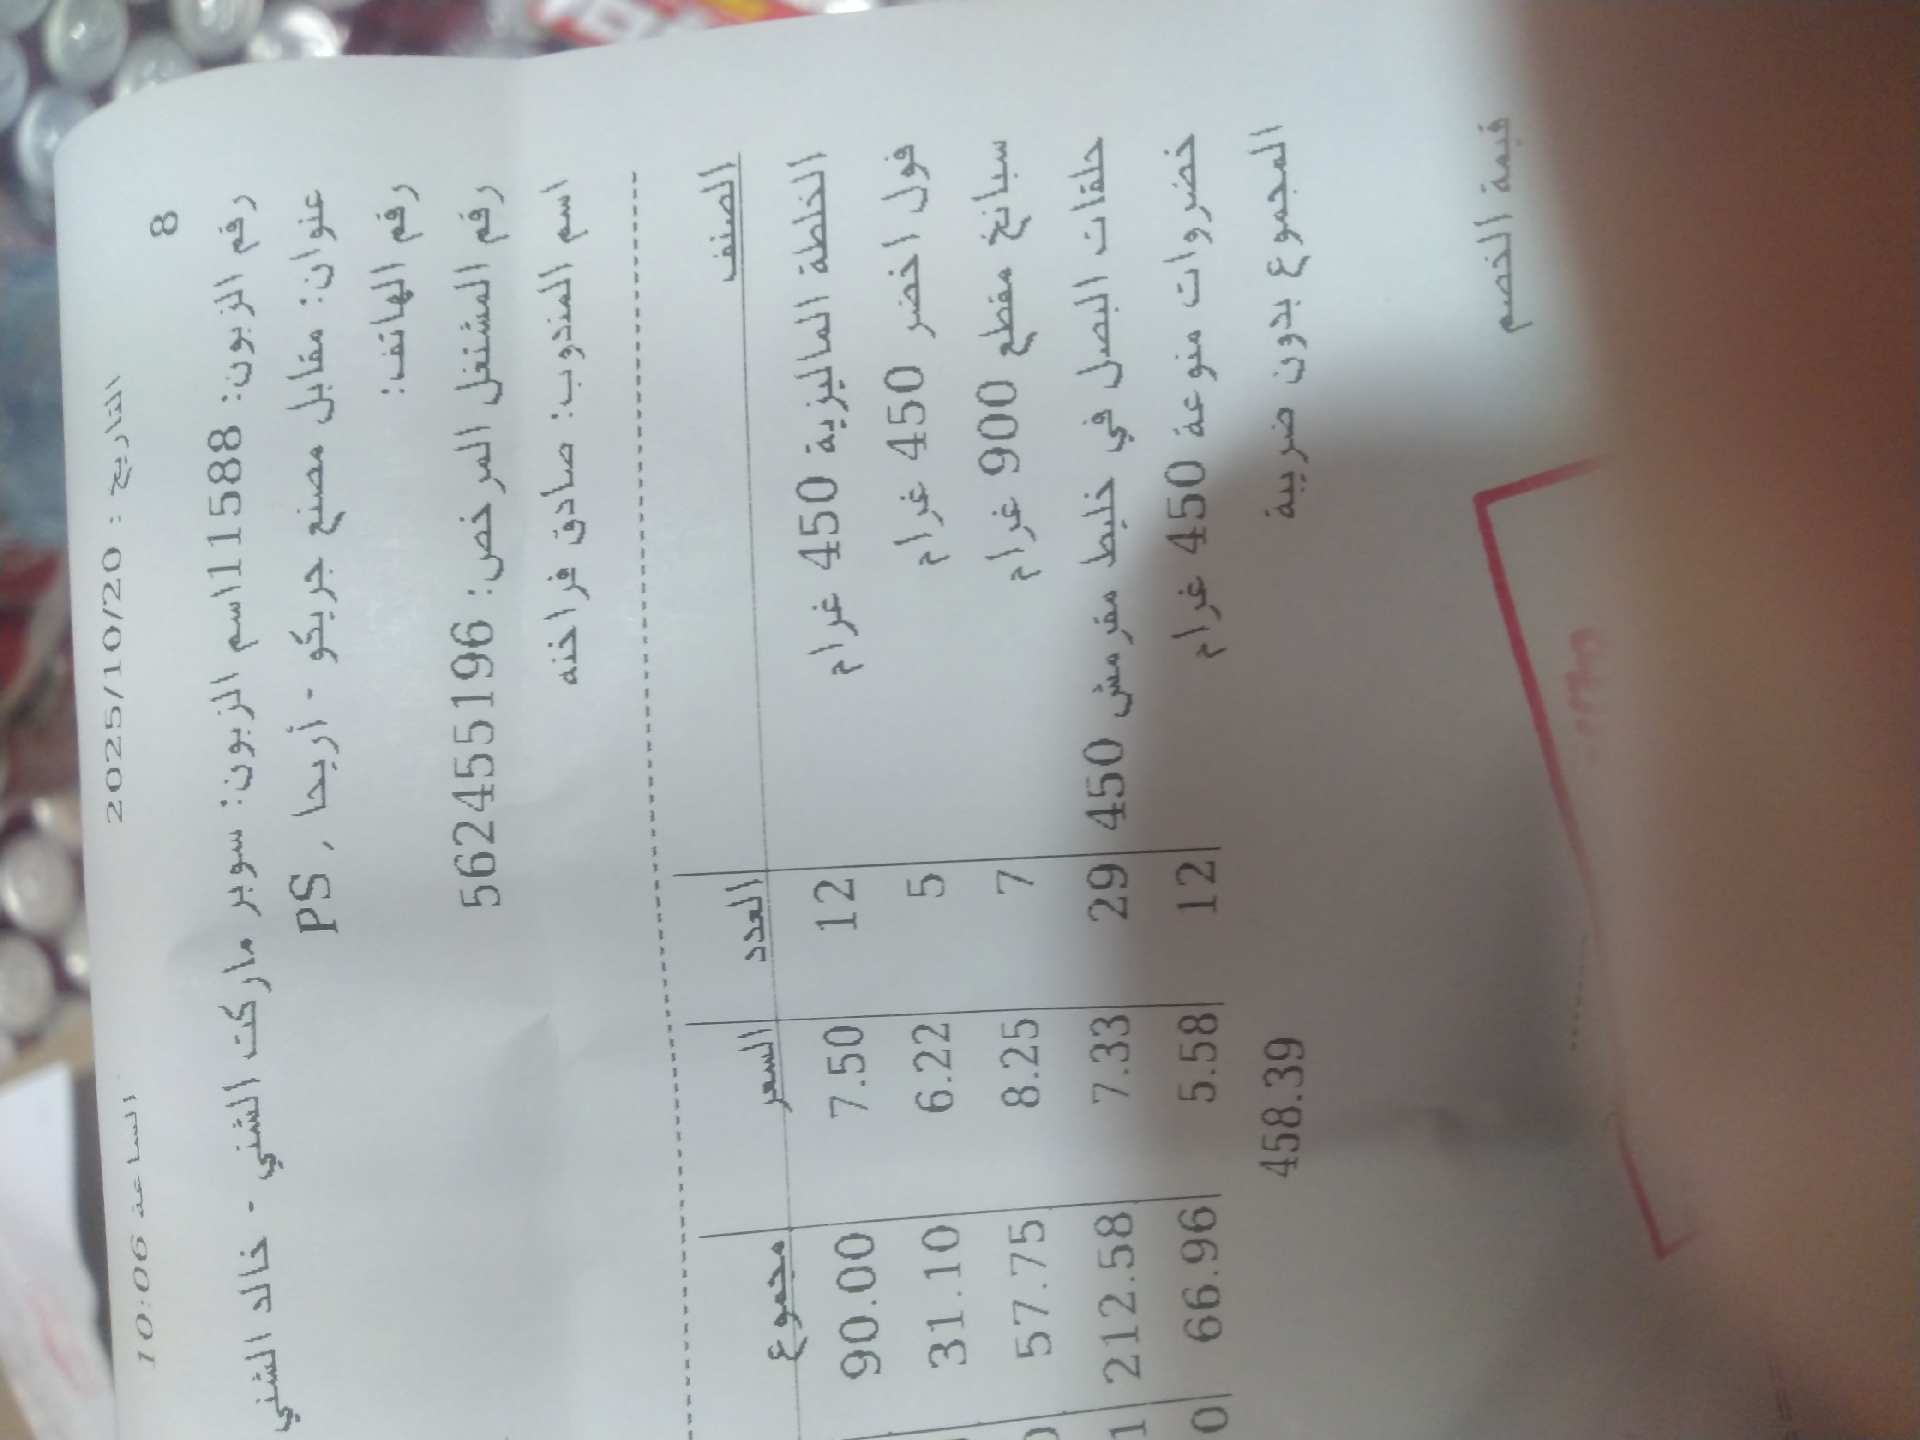 التاريخ : 2025/10/20 الساعة 10:06
8
رقم الزبون: 11588اسم الزبون: سوبر ماركت الشني - خالد الشني
عنوان: مقابل مصنع جريكو - أريحا , PS
رقم الهاتف:
رقم المشتغل المرخص: 562455196
اسم المندوب: صادق فراخنه
الصنف العدد السعر مجموع
الخلطة الماليزية 450 غرام 12 7.50 90.00
فول اخضر 450 غرام 5 6.22 31.10
سبانخ مقطع 900 غرام 7 8.25 57.75
حلقات البصل في خليط مقرمش 450 29 7.33 212.58 1
خضروات منوعة 450 غرام 12 5.58 66.96 0
المجموع بدون ضريبة 458.39
قيمة الخصم